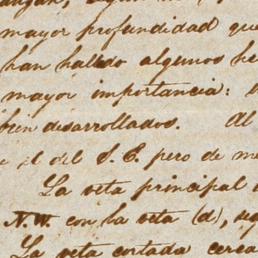 mayor profundidad que
han hallado algunos he
mayor importancia:
bien desarrollados. Al
el del S. E. pero de me
La veta principal
N.W. con la veta (d), seg
La veta cortada cerca